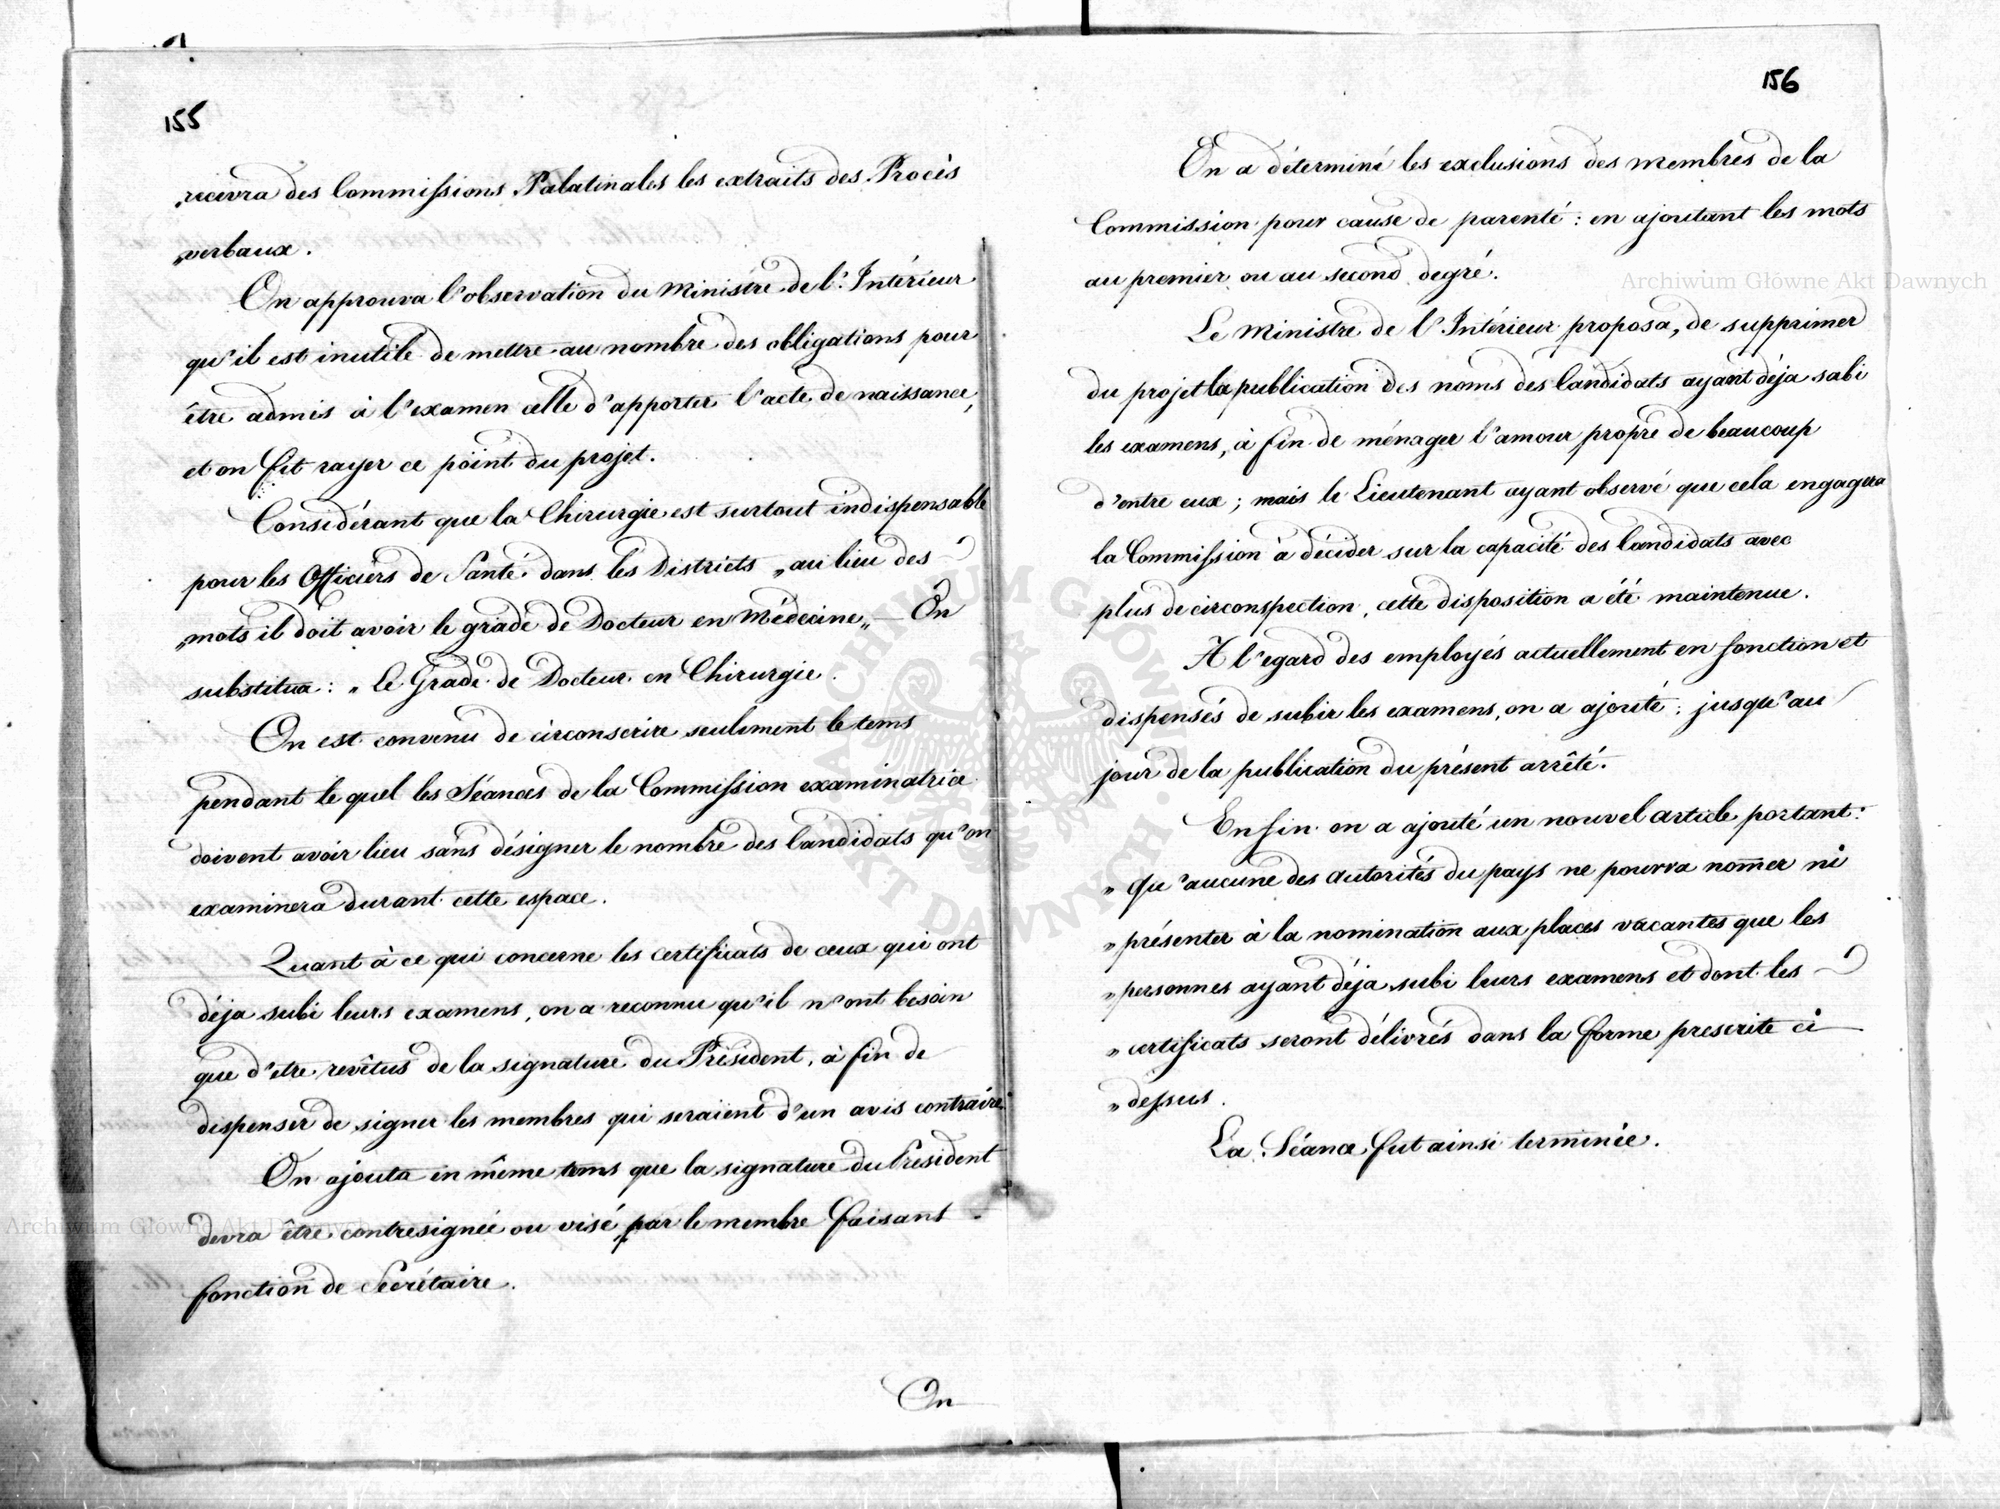 155
„recevra des Commissions Palatinales les extraits des Procès
„verbaux.
On approuva l'observation du Ministre de l'Intérieur
qu'il est inutile de mettre au nombre des obligations pour
être admis à l'examen celle d'apporter l'acte de naissance,
et on fit rayer ce point du projet.
Considérant que la Chirurgie est surtout indispensable
pour les Officiers de Santé dans les Districts „au lieu des
„mots il doit avoir le grade de Docteur en Médecine„ — On
substitua: „Le Grade de Docteur en Chirurgie.
On est convenu de circonscrire seulement le tems
pendant le quel les Séances de la Commission examinatrice
doivent avoir lieu sans désigner le nombre des Candidats qu'on
examinera durant cette espace.
Quant à ce qui concerne les certificats de ceux qui ont
déja subi leurs examens, on a reconnu qu'il n'ont besoin
que d'etre revêtus de la signature du Président, à fin de
dispenser de signer les membres qui seraient d'un avis contraire.
On ajouta en même tems que la signature du Président
devra être contresignée ou visé, par le membre faisant
fonction de Secrétaire.
On
156
On a déterminé les exclusions des membres de la
Commission pour cause de parenté: en ajoutant les mots
au premier ou au second degré.
Le Ministre de l'Intérieur proposa, de supprimer
du projet la publication des noms des Candidats ayant déja subi
les examens, à fin de ménager l'amour propre de beaucoup
d'entre eux; mais le Lieutenant ayant observé que cela engagera
la Commission à décider sur la capacité des Candidats avec
plus de circonspection, cette disposition a été maintenue.
A l'egard des employés actuellement en fonction et
dispensés de subir les examens, on a ajouté: jusqu'au
jour de la publication du présent arrêté.
Enfin on a ajouté un nouvel article portant:
„Qu'aucune des autorités du pays ne pourra nom̄er ni
„présenter à la nomination aux places vacantes que les
„personnes ayant déja subi leurs examens et dont les
„certificats seront délivrés dans la forme prescrite ci
„dessus.
La Séance fut ainsi terminée.
Archiwum Główne Akt Dawnych
Archiwum Główne Akt Dawnych
ARCHIWUM GŁÓWNE · AKT DAWNYCH ·